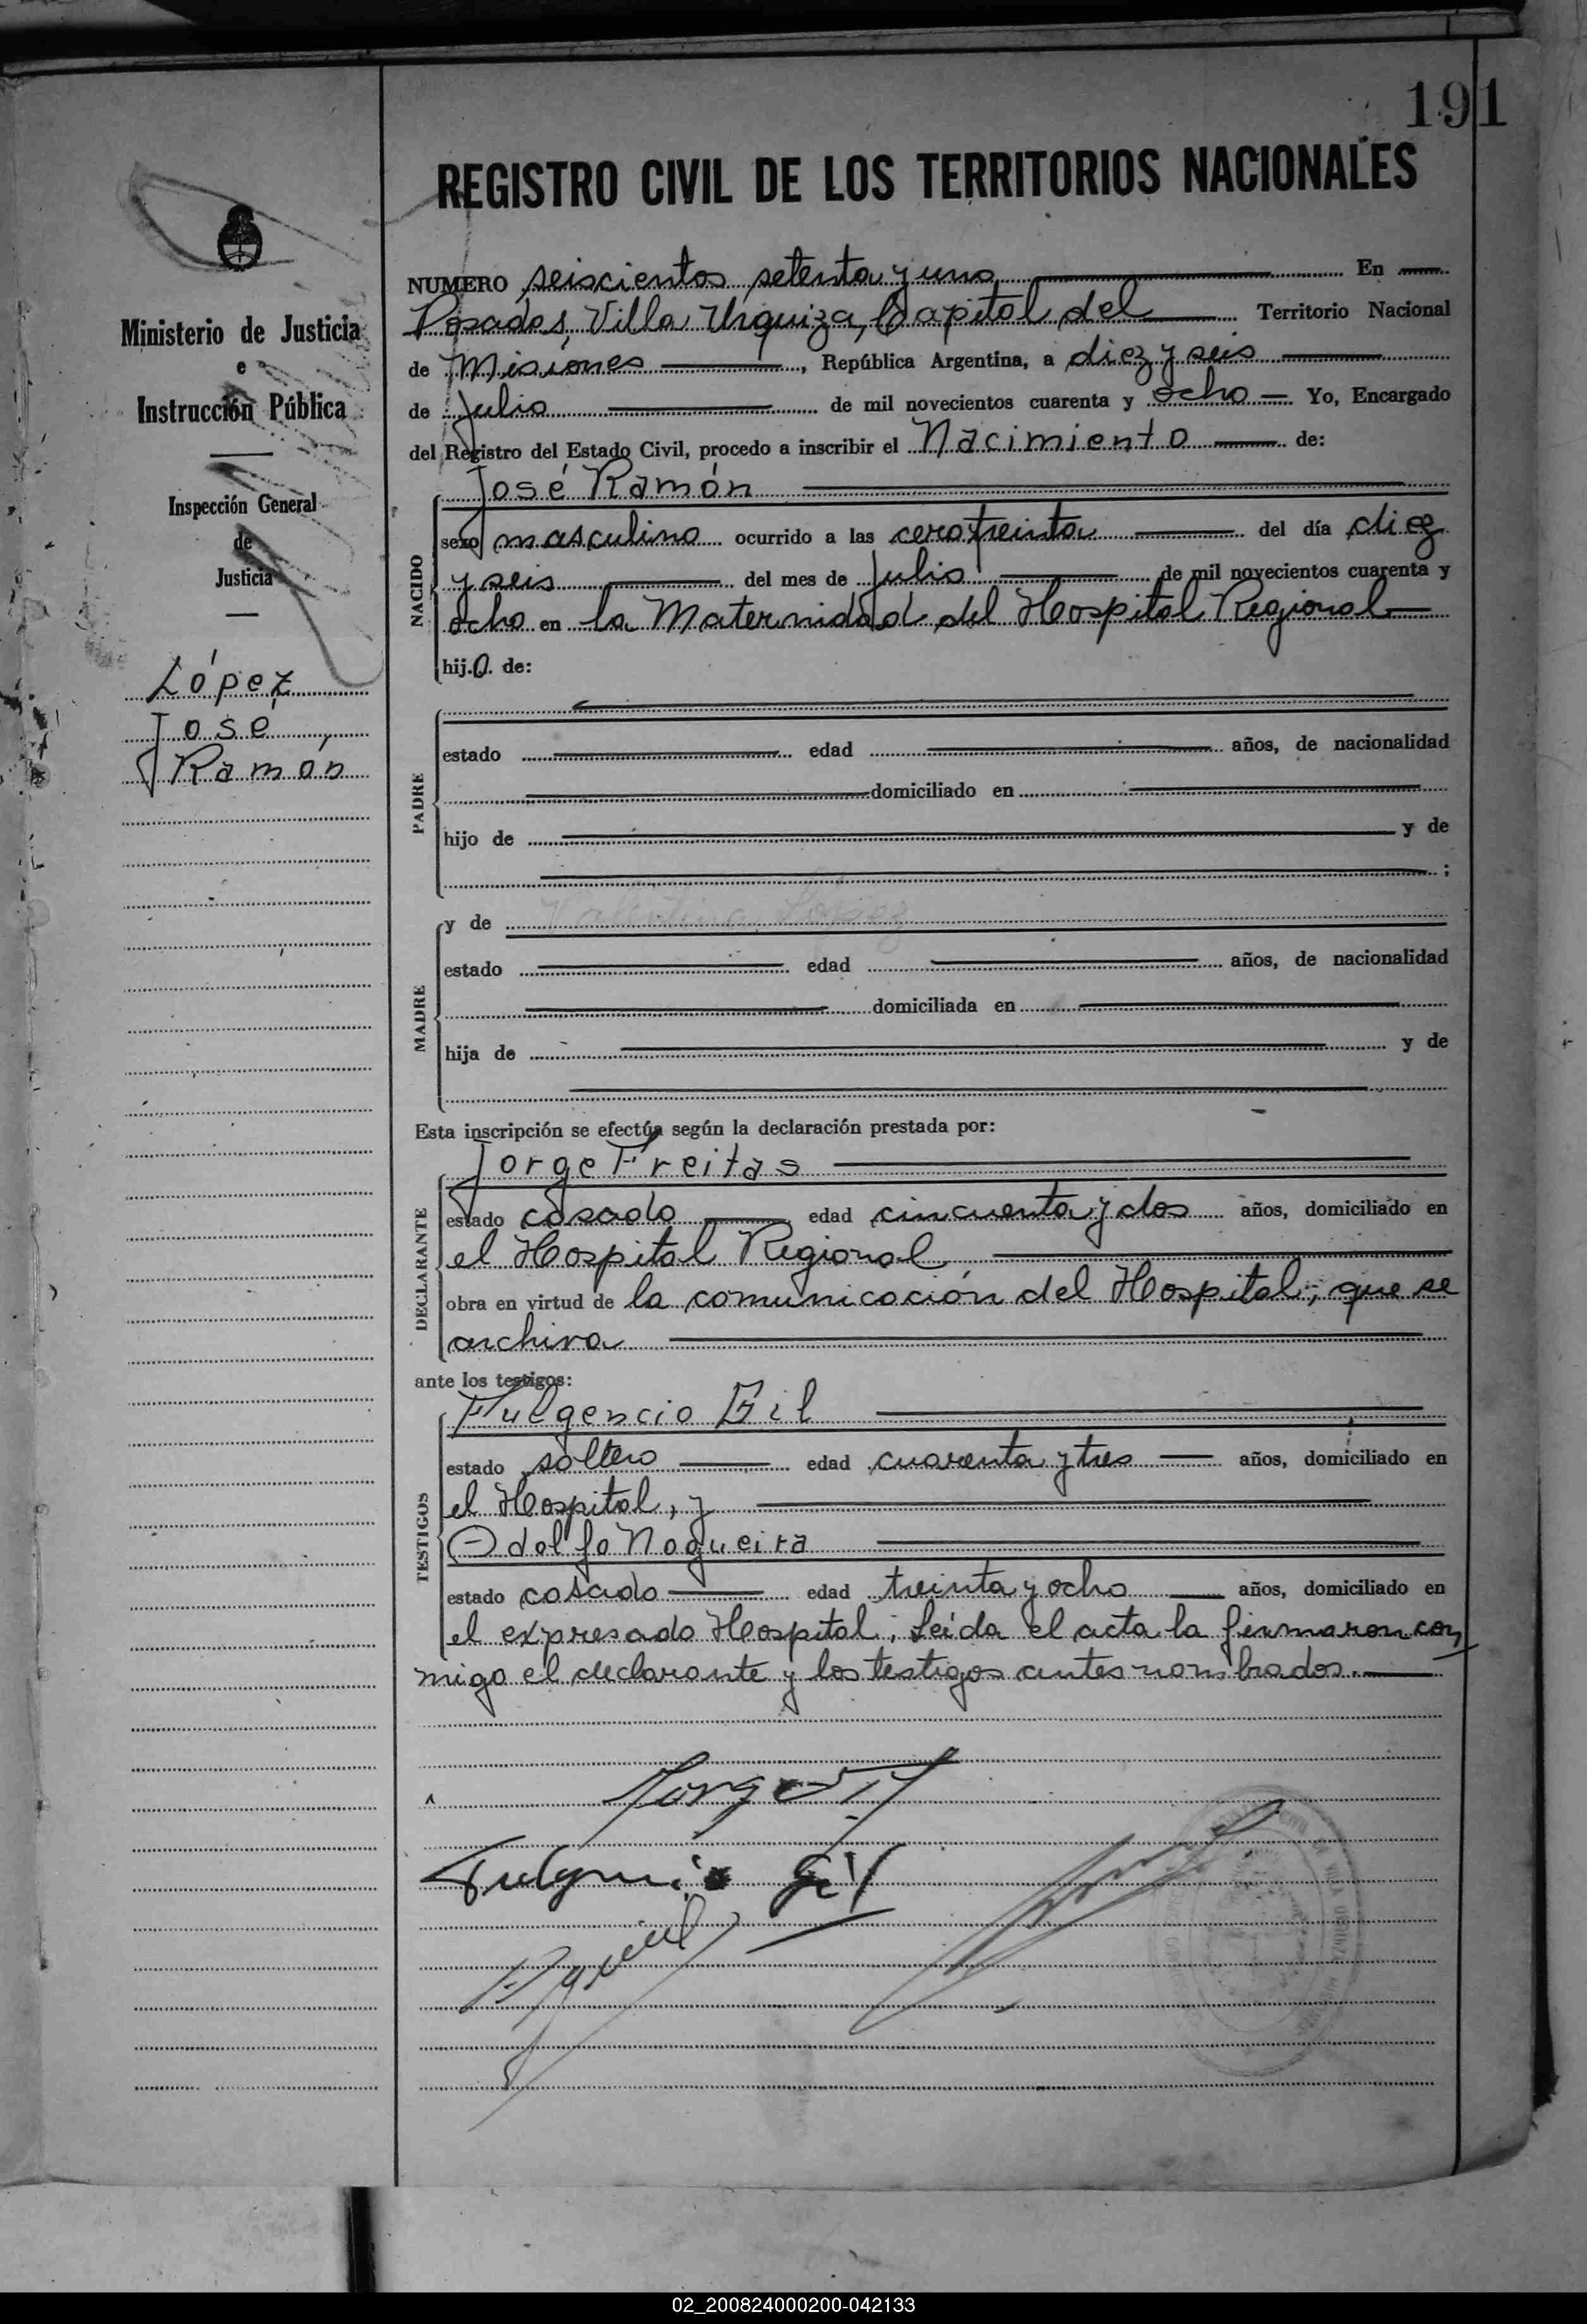 191
REGISTRO CIVIL DE LOS TERRITORIOS NACIONALES
Ministerio de Justicia
e
Instrucción Pública
Inspección General
de
Justicia
López
José
Ramón
NUMERO seiscientos setenta y uno En
Posadas, Villa Urquiza, Capital del Territorio Nacional
de Misiones, República Argentina, a diez y seis
de Julio de mil novecientos cuarenta y ocho Yo, Encargado
del Registro del Estado Civil, procedo a inscribir el Nacimiento de:
NACIDO
José Ramón
sexo masculino ocurrido a las cero treinta del día diez
y seis del mes de Julio de mil novecientos cuarenta y
ocho en la Maternidad del Hospital Regional
hij.o. de:
PADRE
estado edad años, de nacionalidad
domiciliado en
hijo de y de
;
MADRE
y de López
estado edad años, de nacionalidad
domiciliada en
hija de y de
Esta inscripción se efectúa según la declaración prestada por:
DECLARANTE
Jorge Freitas
estado casado edad cincuenta y dos años, domiciliado en
el Hospital Regional
obra en virtud de la comunicación del Hospital; que se
archiva
ante los testigos:
TESTIGOS
Fulgencio Gil
estado soltero edad cuarenta y tres años, domiciliado en
el Hospital, y
Odolfo Nogueira
estado casado edad treinta y ocho años, domiciliado en
el expresado Hospital; Leída el acta la firmaron con
migo el declarante y los testigos antes nombrados.
Fulgencio Gil
02_200824000200-042133